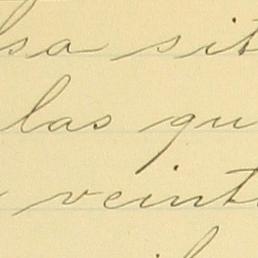 lsa sit
las qu
veint